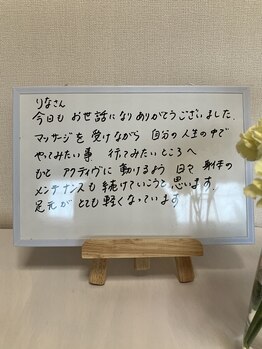 りなさん
今日も お世話になり ありがとうございました.
マッサージを 受けながら 自分の 人生の中で
やってみたい事 行ってみたいところへ
もっと アクティヴに 動けるよう 日々 身体の
メンテナンスも 続けていこうと 思います.
足元が とても 軽くなっています